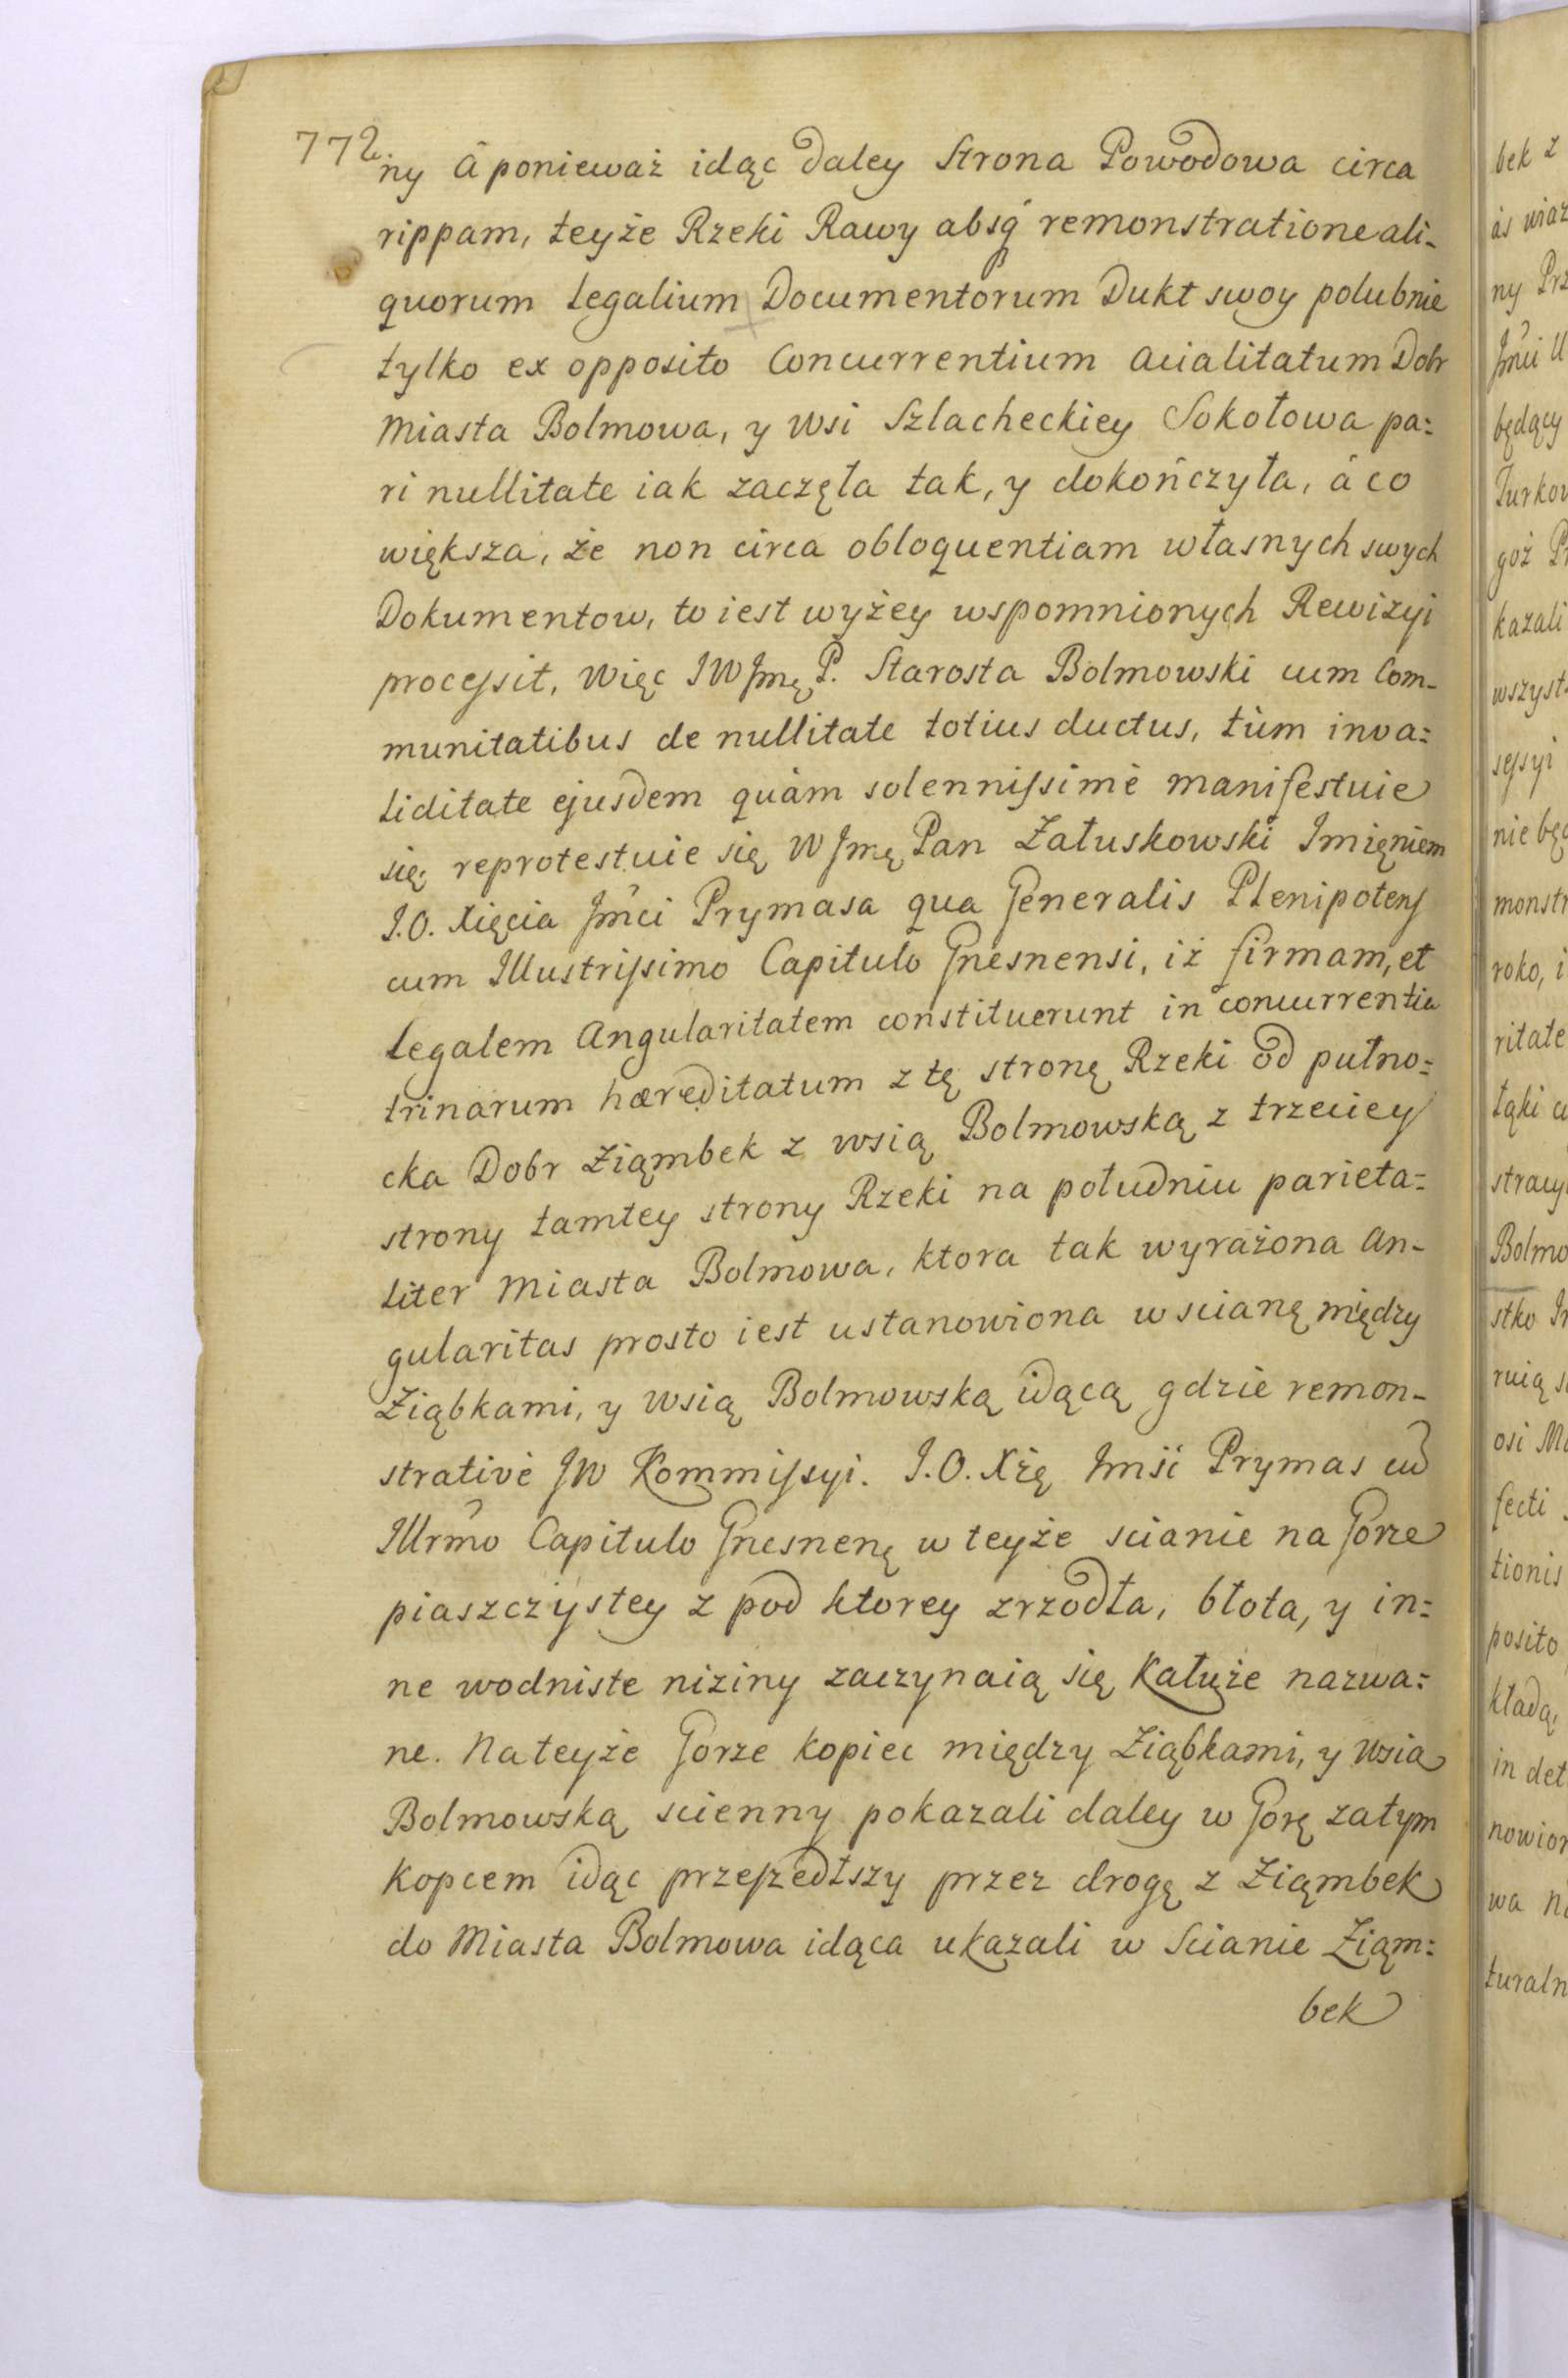 772
ny á ponieważ idąc daley Strona Powodowa circa
rippam, teyże Rzeki Rawy absq remonstratione ali-
quorum legalium Documentorum Dukt swoy polubnie
tylko ex opposito Concurrentium acialitatum Dobr
Miasta Bolmowa, y Wsi Szlacheckiey Sokołowa pa:
ri nullitate iak zaczęła tak, y dokończyła, á co
większa, że non circa obloquentiam własnych swych
Dokumentow, to iest wyżey wspomnionych Rewizyi
processit, Więc JWJmę P. Starosta Bolmowski cum Com-
munitatibus de nullitate totius ductus, tùm inva:
liditate ejusdem quàm solennissimè manifestuie
się, reprotestuie się WJmę Pan Załuskowski Imięniem
J.O. Xięcia Jmći Prymasa qua Generalis Plenipotens
cum Illustrissimo Capitulo Gnesnensi, iż firmam, et
legalem Angularitatem constituerunt in concurrentia
trinarum hæreditatum z tę stronę Rzeki od pułno:
cka Dobr Ziąmbek z wsią Bolmowską z trzeciey
strony tamtey strony Rzeki na południu parieta:
liter Miasta Bolmowa, ktora tak wyrażona An-
gularitas prosto iest ustanowiona w scianę między
Ziąbkami, y Wsią Bolmowską idącą gdzie remon-
strativè JW Kommissyi. J.O. Xżę Jmść Prymas cum
Illrmo Capitulo Gnesnenę w teyże scianie na Gorze
piaszczystey z pod ktorey zrzodła, błota, y in:
ne wodniste niziny zaczynaią się Kałuże nazwa:
ne. Na teyże Gorze kopiec między Ziąbkami, y Wsia
Bolmowską scienny pokazali daley w Gorę zatym
Kopcem idąc przeszedłszy przez drogę z Ziąmbek
do Miasta Bolmowa idąca ukazali w Scianie Ziąm:
bek
bek z
ny
będący
kazali
wszyst
sessyi
monstr
roko, i
ritate
Bolmo
fecti
tionis
posito
in det
wa